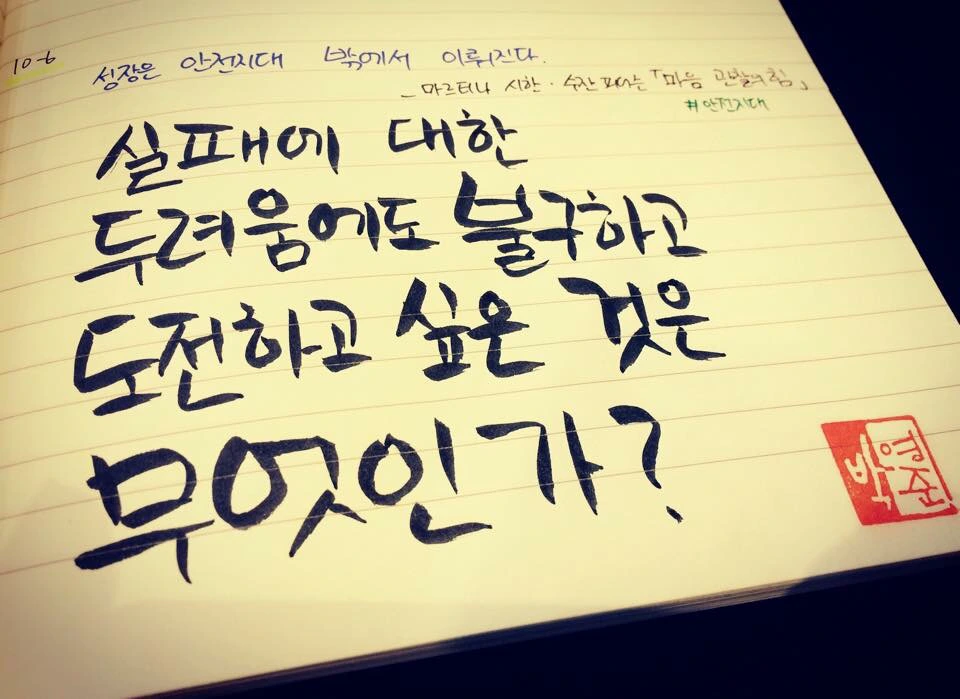 10-6
성장은 안전지대 밖에서 이뤄진다.
_ 마르티나 시한·수잔 피어슨 「마음 관찰의 힘」
#안전지대
실패에 대한
두려움에도 불구하고
도전하고 싶은 것은
무엇인가?